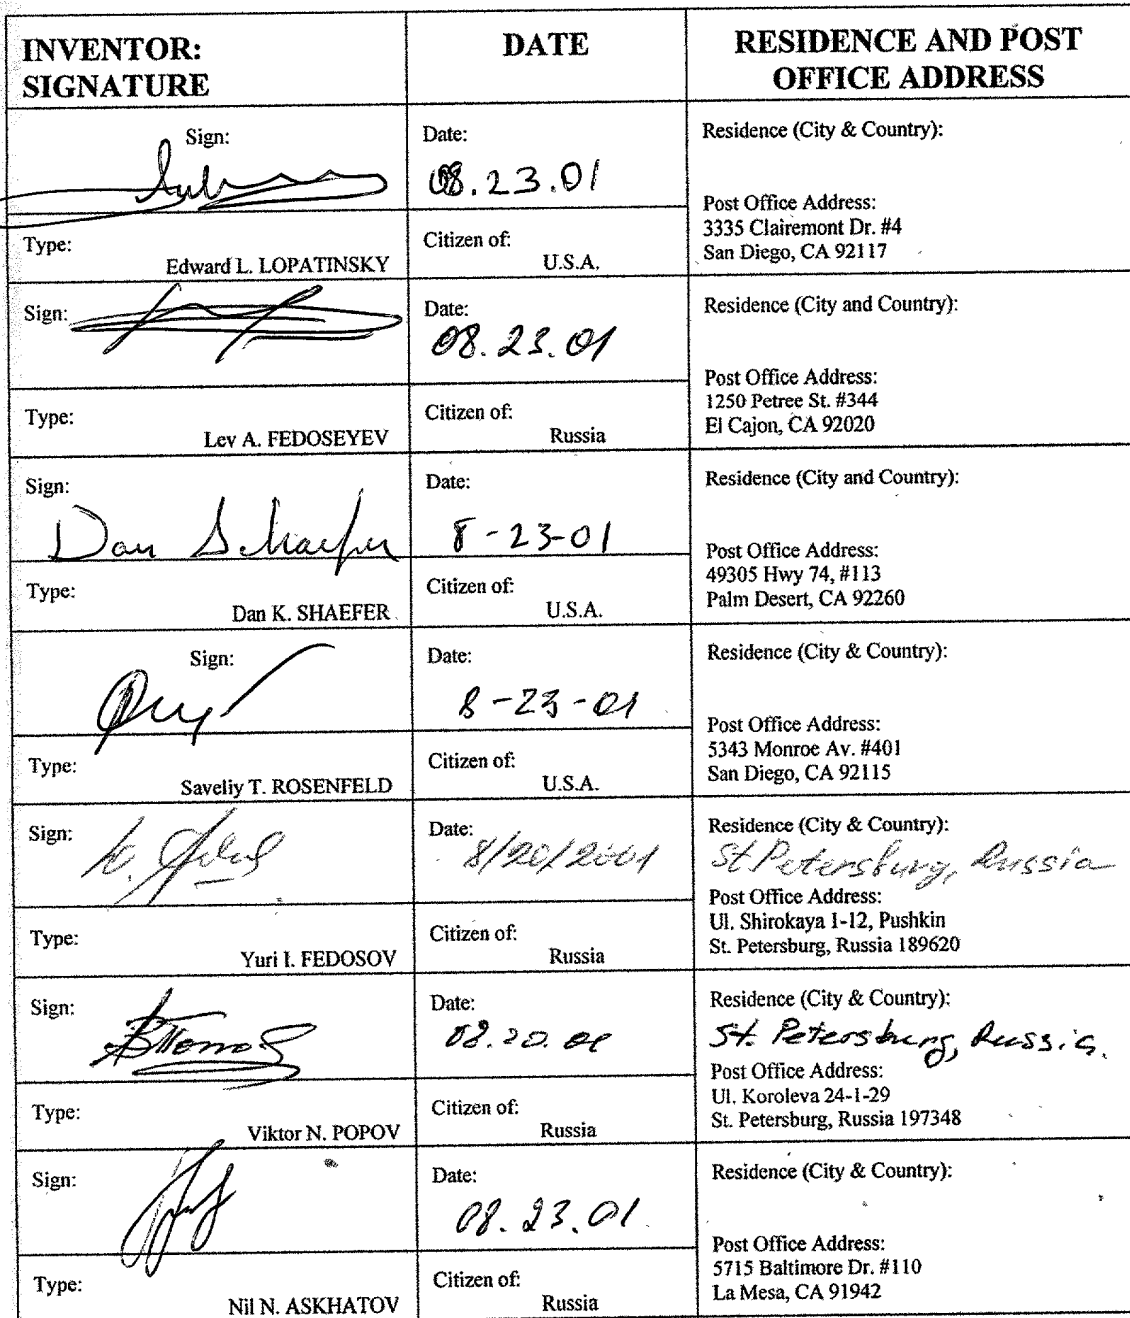 INVENTOR: SIGNATURE
DATE
RESIDENCE AND POST OFFICE ADDRESS
Sign:
Date:
08.23.01
Residence (City & Country):
Post Office Address:
3335 Clairemont Dr. #4
San Diego, CA 92117
Type:
Edward L. LOPATINSKY
Citizen of:
U.S.A.
Sign:
Date:
08.23.01
Residence (City and Country):
Post Office Address:
1250 Petree St. #344
El Cajon, CA 92020
Type:
Lev A. FEDOSEYEV
Citizen of:
Russia
Sign:
Dan Schaefer
Date:
8-23-01
Residence (City and Country):
Post Office Address:
49305 Hwy 74, #113
Palm Desert, CA 92260
Type:
Dan K. SHAEFER
Citizen of:
U.S.A.
Sign:
Date:
8-23-01
Residence (City & Country):
Post Office Address:
5343 Monroe Av. #401
San Diego, CA 92115
Type:
Saveliy T. ROSENFELD
Citizen of:
U.S.A.
Sign:
Date:
8/20/2001
Residence (City & Country):
St Petersburg, Russia
Post Office Address:
Ul. Shirokaya 1-12, Pushkin
St. Petersburg, Russia 189620
Type:
Yuri I. FEDOSOV
Citizen of:
Russia
Sign:
Date:
08.20.01
Residence (City & Country):
St. Petersburg, Russia.
Post Office Address:
Ul. Koroleva 24-1-29
St. Petersburg, Russia 197348
Type:
Viktor N. POPOV
Citizen of:
Russia
Sign:
Date:
08.23.01
Residence (City & Country):
Post Office Address:
5715 Baltimore Dr. #110
La Mesa, CA 91942
Type:
Nil N. ASKHATOV
Citizen of:
Russia